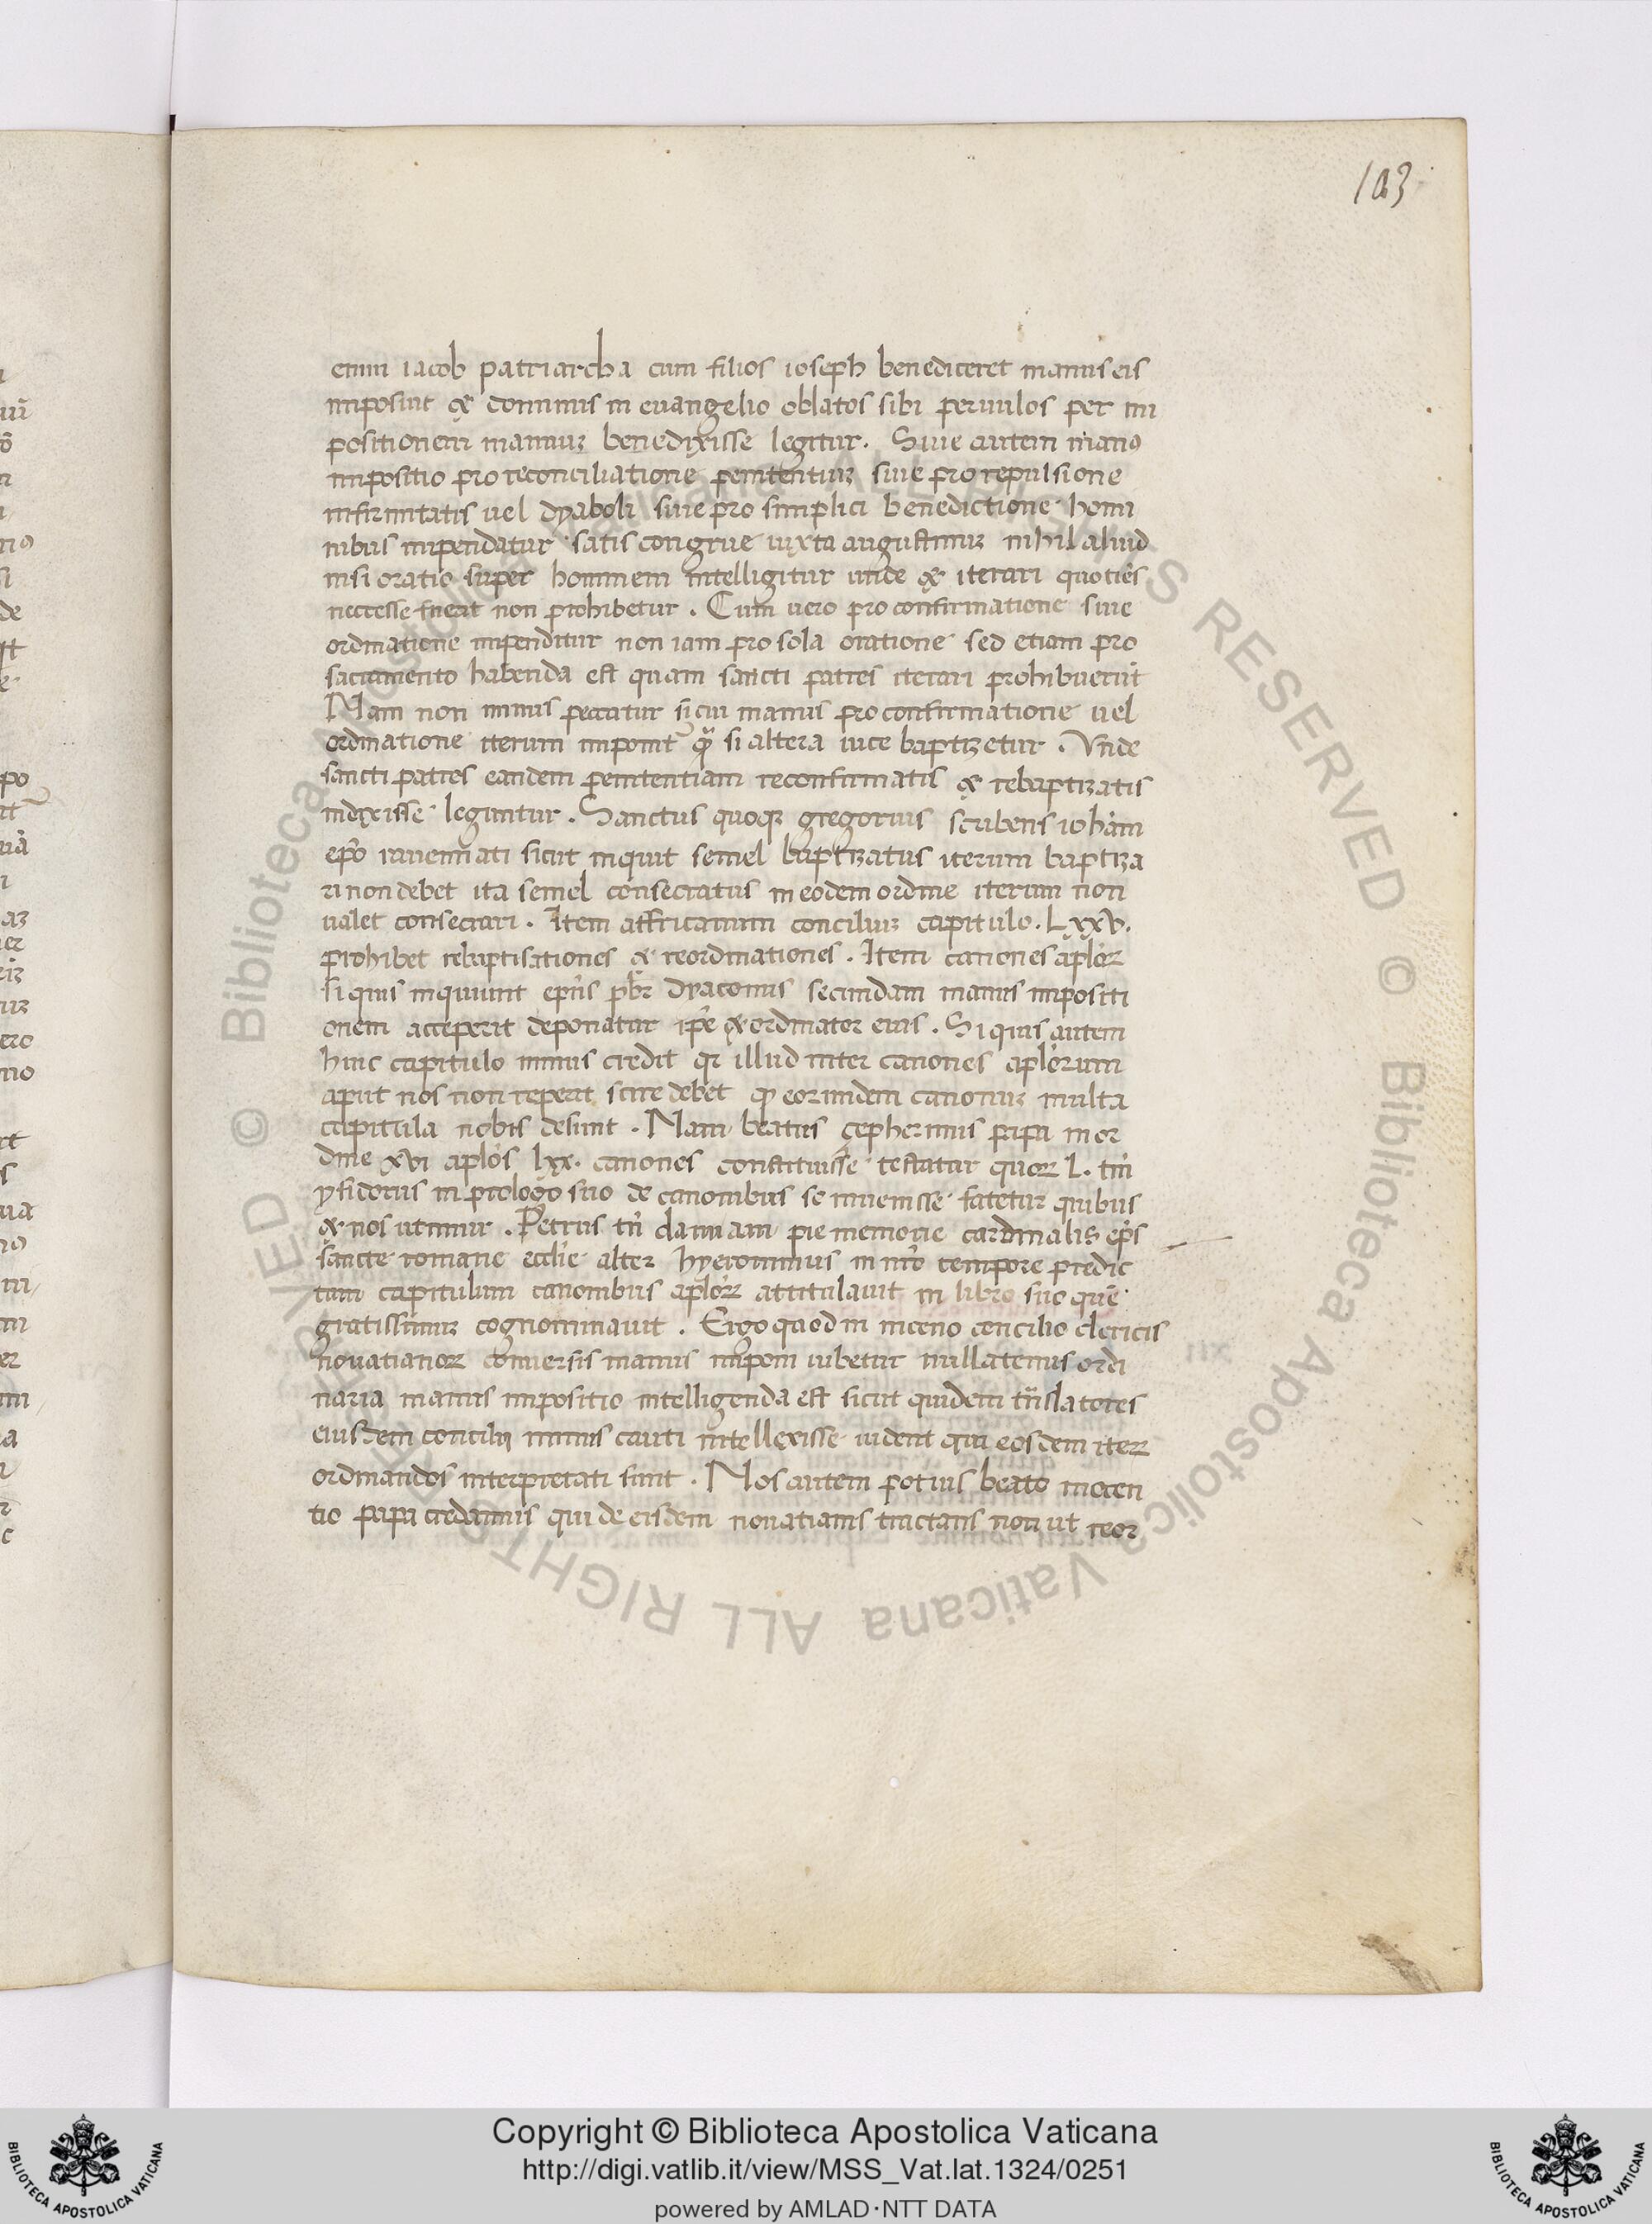 103
enim iacob patriarcha cum filios ioseph benediceret manus eis
imposuit & dominus in euangelio oblatos sibi paruulos per im
positionem manuuꝫ benedixisse legitur. Siue autem manꝰ
impositio pro reconciliatione penitentiuꝫ siue pro repulsione
infirmitatis uel dyaboli siue pro simplici benedictione homi
nibus impendatur satis congrue iuxta augustinuꝫ nihil aliud
nisi oratio super hominem intelligitur unde & iterari quotiēs
neccesse fuerit non prohibetur. Cum uero pro confirmatione siue
ordinatione impenditur non iam pro sola oratione sed etiam pro
sacramento habenda est quam sancti patres iterari prohibuerūt
Nam non minus peccatur si cui manus pro confirmatione uel
ordinatione iterum imponit᷑ qȝ̄ si altera uice baptizetur. Vnde
sancti patres eandem penitentiam reconfirmatis & rebaptizatis
indixisse leguntur. Sanctus quoqꝫ gregorius scribens iohāni
ep̄o rauennati sicut inquit semel baptizatus iterum baptiza
ri non debet ita semel consecratus in eodem ordine iterum non
ualet consecrari. Item affricanum conciliuꝫ capitulo. Lxxv.
prohibet rebaptisationes & reordinationes. Item canones aplo̅ꝝ
si quis inquiunt ep̄us pb̄r dyaconus secundam manus impositi
onem acceperit deponatur ip̄e & ordinator eius. Si quis autem
huic capitulo minus credit qꝛ illud inter canones apl̄orum
aput nos non reperit scire debet qꝫ eorundem canonuꝫ multa
capitula nobis desunt. Nam beatus çepherinus papa in or
dine xvi apl̄os lxx. canones constituisse testatur quoꝝ L. tm̄
ysidorus in prologo suo de canonibus se inuenisse fatetur quibus
& nos utimur. Petrus tn̄ damiani pie memorie cardinalis ep̄s
sancte romane eccl̄ie alter hyeronimus in nr̄o tempore predic
tum capitulum canonibus apl̄oꝝ attitulauit in libro suo quē
gratissimuꝫ cognominauit. Ergo quod in niceno concilio clericis
nouatianoꝝ conuersis manus imponi iubetur nullatenus ordi
naria manus impositio intelligenda est sicut quidem trn̄slatores
eiusdem concilij minus cauti intellexisse uident᷑ qui eosdem iteꝝ
ordinandos interpretati sunt. Nos autem potius beato inocen
tio papa credamus qui de eisdem nouatianis tractans non ut reor
Copyright © Biblioteca Apostolica Vaticana
http://digi.vatlib.it/view/MSS_Vat.lat.1324/0251
powered by AMLAD·NTT DATA